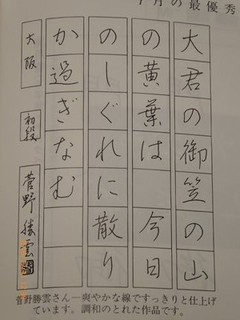 月の最優秀
大君の御笠の山
の黄葉は今日
のしぐれに散り
か過ぎなむ
大阪 初段 菅野勝雲
菅野勝雲さん―爽やかな線ですっきりと仕上げ
ています。調和のとれた作品です。